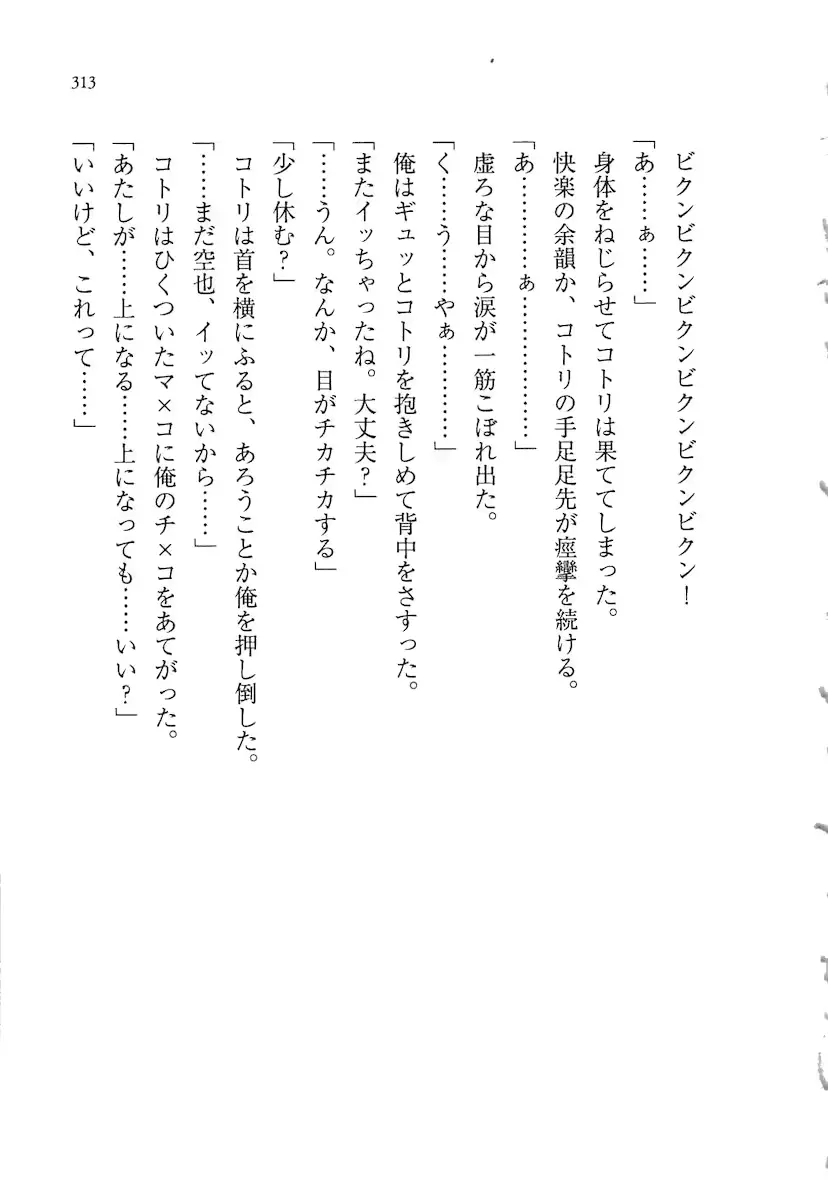 313
ビクンビクンビクンビクンビクン！
「あ……ぁ……」
身体をねじらせてコトリは果ててしまった。
快楽の余韻か、コトリの手足足先が痙攣を続ける。
「あ…………ぁ………………」
虚ろな目から涙が一筋こぼれ出た。
「く……う……やぁ…………」
俺はギュッとコトリを抱きしめて背中をさすった。
「またイッちゃったね。大丈夫？」
「……うん。なんか、目がチカチカする」
「少し休む？」
コトリは首を横にふると、あろうことか俺を押し倒した。
「……まだ空也、イッてないから……」
コトリはひくついたマ×コに俺のチ×コをあてがった。
「あたしが……上になる……上になっても……いい？」
「いいけど、これって……」